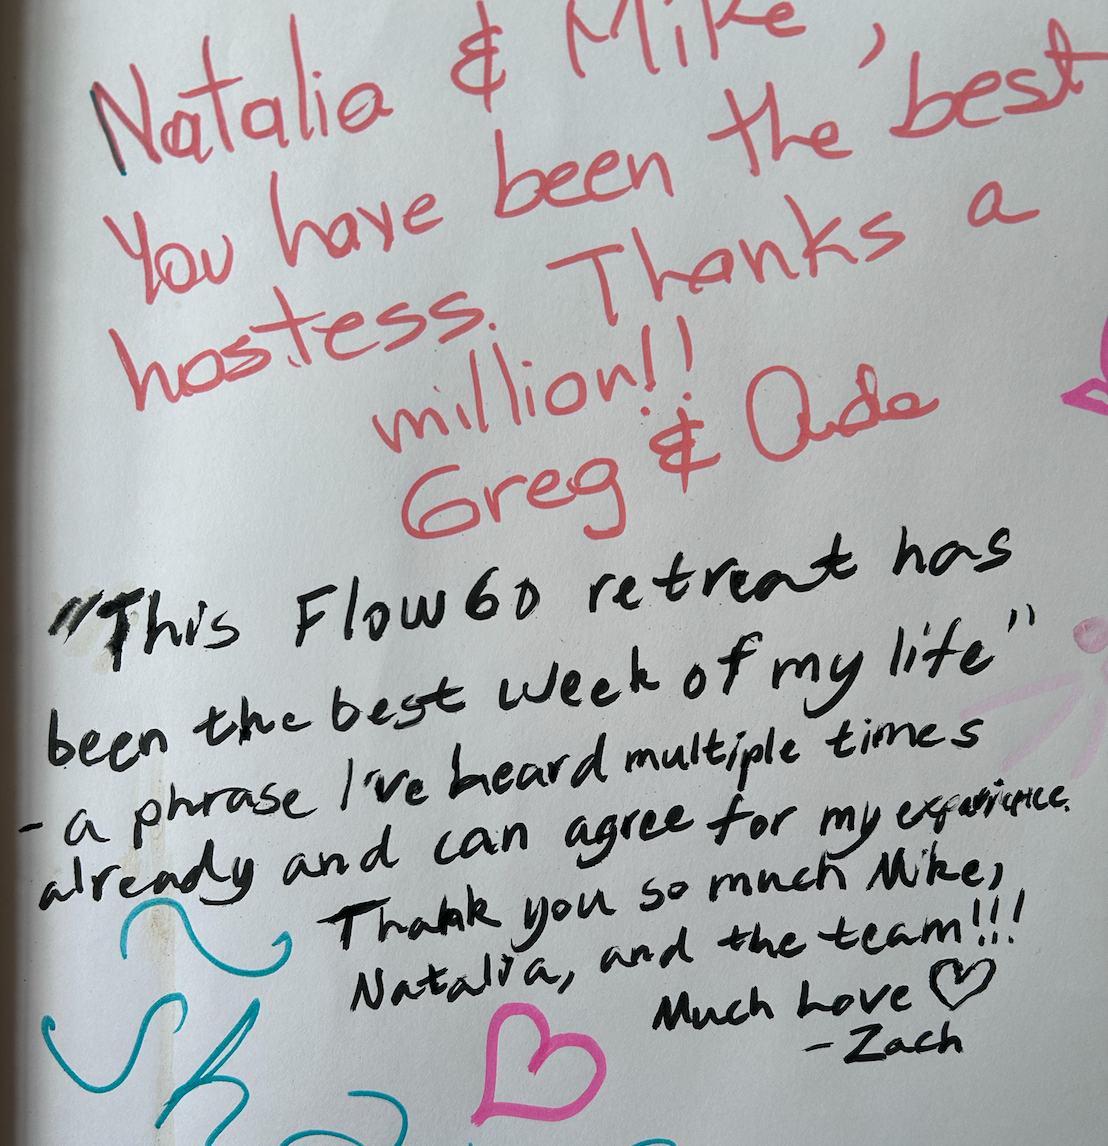 Natalia & Mike,
You have been the best
hostess. Thanks a
million!!
Greg & Aude
"This Flow60 retreat has
been the best week of my life"
- a phrase I've heard multiple times
already and can agree for my experience.
Thank you so much Mike,
Natalia, and the team!!!
Much Love ♡
- Zach